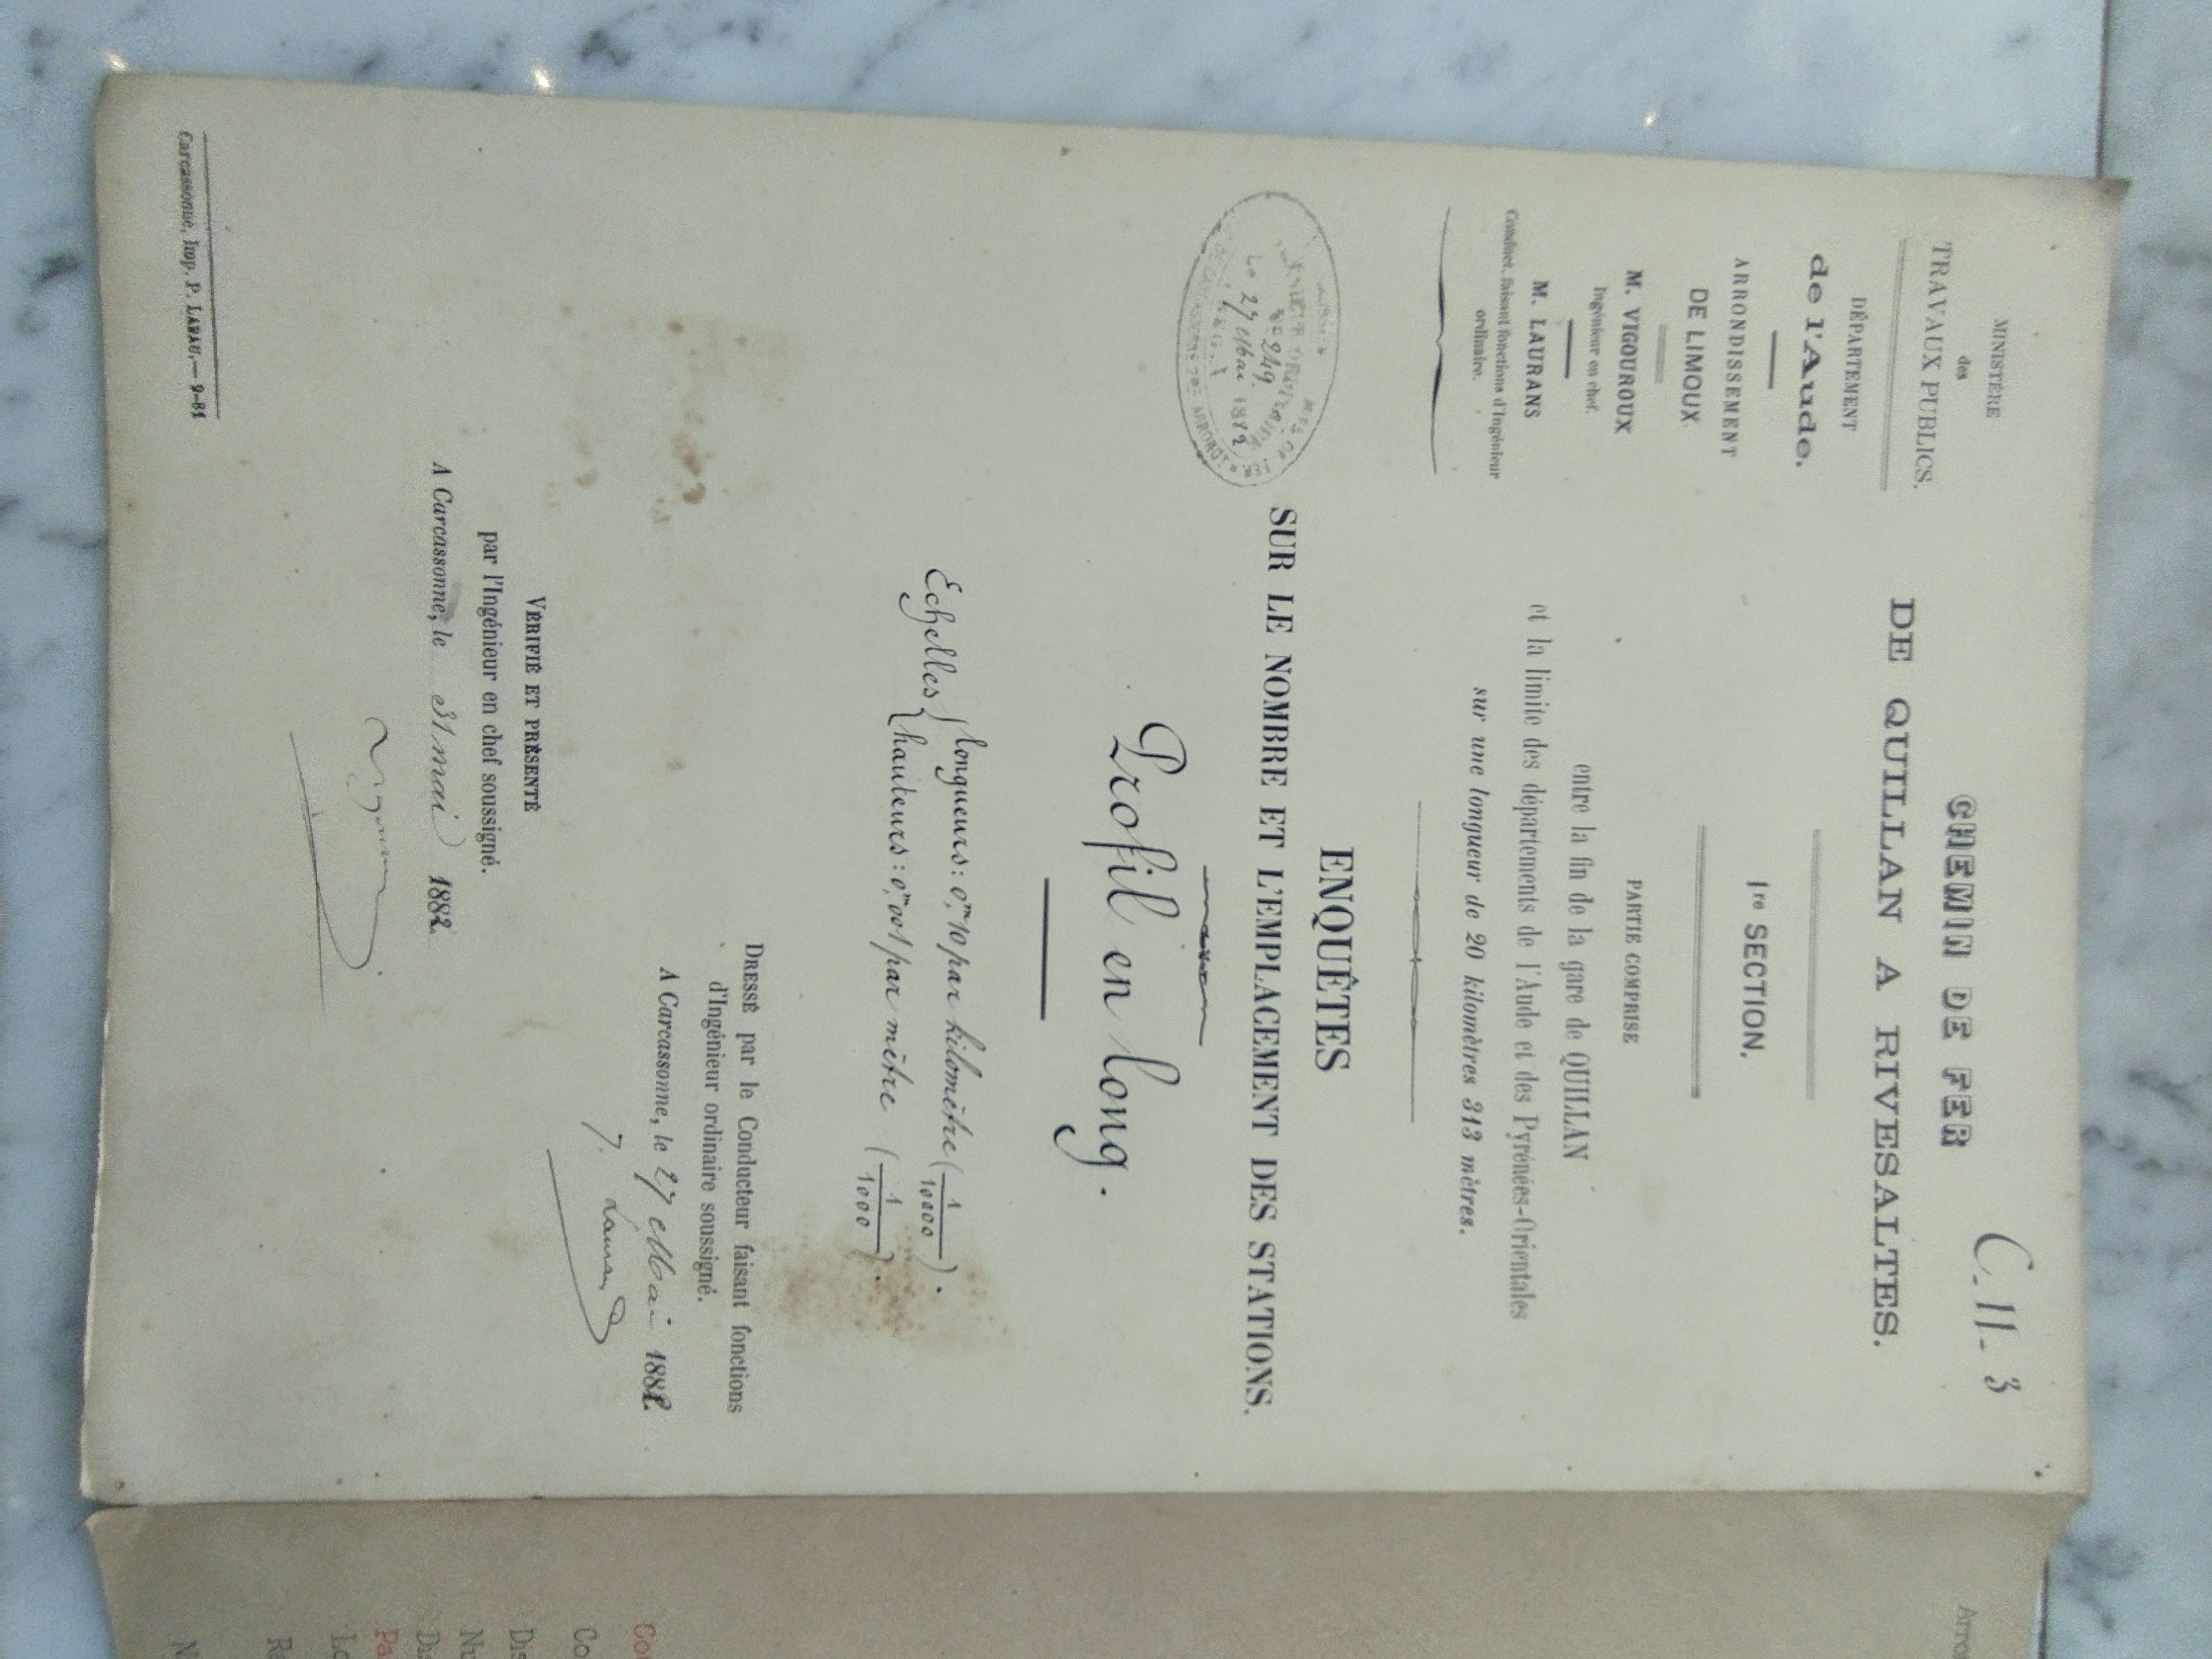 C. 11 - 3
MINISTÈRE
des
TRAVAUX PUBLICS.
DÉPARTEMENT
de l'Aude.
ARRONDISSEMENT
DE LIMOUX
M. VIGOUROUX
Ingénieur en chef.
M. LAURANS
Conduct. faisant fonctions d'Ingénieur
ordinaire.
CHEMIN DE FER
DE QUILLAN A RIVESALTES.
1re SECTION.
PARTIE COMPRISE
entre la fin de la gare de QUILLAN
et la limite des départements de l'Aude et des Pyrénées-Orientales
sur une longueur de 20 kilomètres 313 mètres.
ENQUÊTES
SUR LE NOMBRE ET L'EMPLACEMENT DES STATIONS.
ORDINAIRE
No 249
Le 27 Mai 1882
DE CARCASSONNE 2me ARRONDt
Profil en long.
Echelles { longueurs: 0,m10 par kilomètre (1/10000).
hauteurs: 0,m001 par mètre (1/1000).
DRESSÉ par le Conducteur faisant fonctions
d'Ingénieur ordinaire soussigné.
A Carcassonne, le 27 Mai 1882.
J. Laurans
VÉRIFIÉ ET PRÉSENTÉ
par l'Ingénieur en chef soussigné.
A Carcassonne, le 31 mai 1882.
Vigouroux
Carcassonne, Imp. P. LABAU.— 9-81
Arro
Co
Co
Dis
Nu
Dis
Pa
Lo
R
N